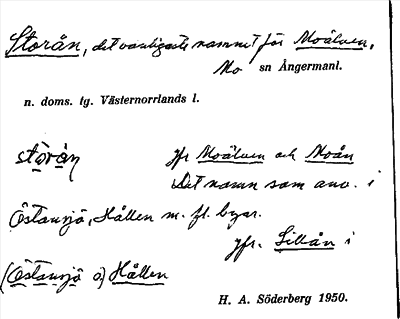 Storån, det vanligaste namnet för Moälven,
Mo sn Ångermanl.
n. doms. tg. Västernorrlands l.
stòrån jfr Moälven och Moån
Det namn som anv. i
Östansjö, Hållen m. fl. byar.
jfr. Lillån i
(Östansjö o) Hållen
H. A. Söderberg 1950.